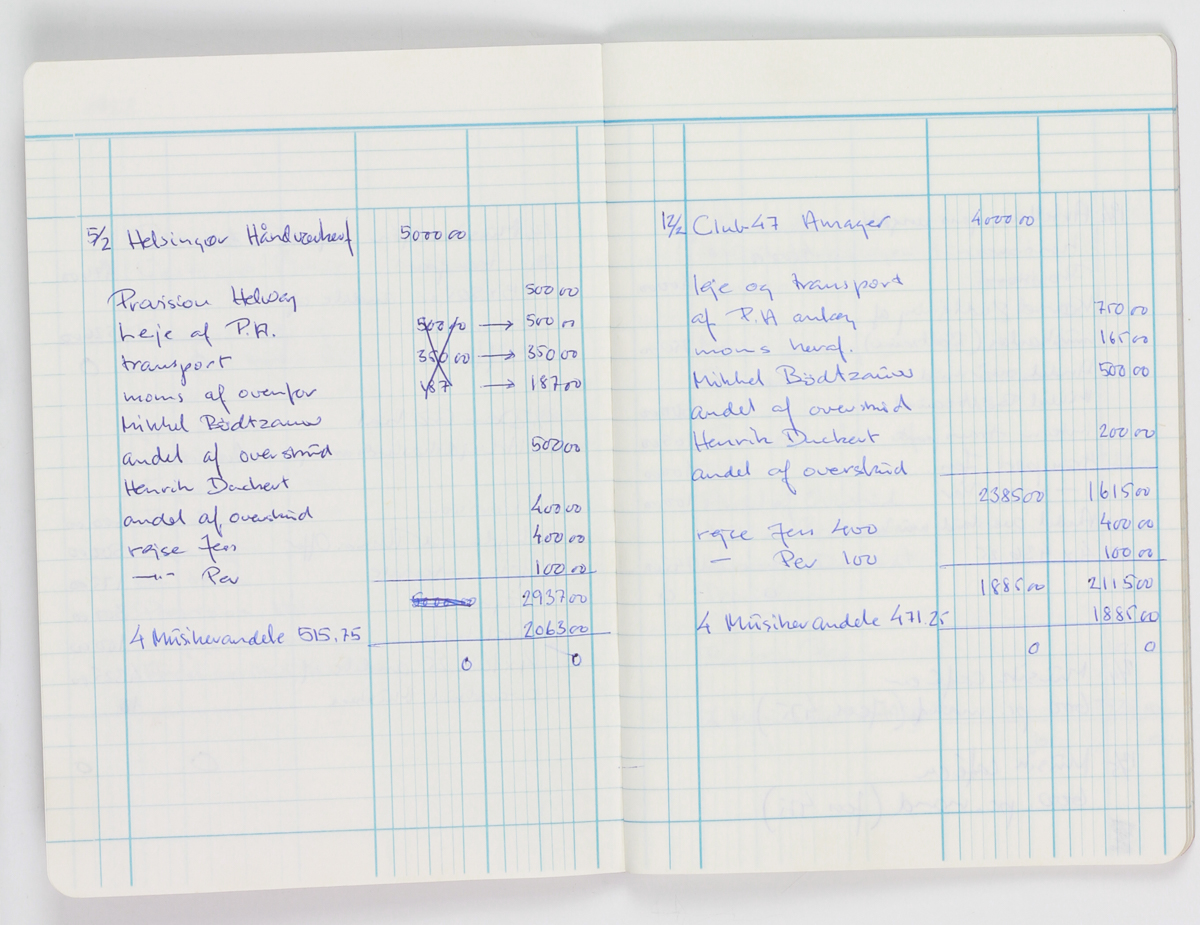 5/2 Helsingør Håndværkerf 5000 00
Provision Helway 500 00
Leje af P.A. 500 00 → 500 00
transport 350 00 → 350 00
moms af ovenfor 187 → 187 00
Mikkel Bödtzauw
andel af overskud 500 00
Henrik Duckert
andel af overskud 400 00
rejse Jens 400 00
—"— Per 100 00
2937 00
4 Musikerandele 515,75 2063 00
0 0
12/2 Club 47 Amager 4000 00
leje og transport
af P.A anlæg 750 00
moms heraf. 165 00
Mikkel Bödtzauw 500 00
andel af overskud
Henrik Duckert 200 00
andel af overskud
2385 00 1615 00
rejse Jens 400 400 00
— Per 100 100 00
1885 00 2115 00
4 Musikerandele 471.25 1885 00
0 0